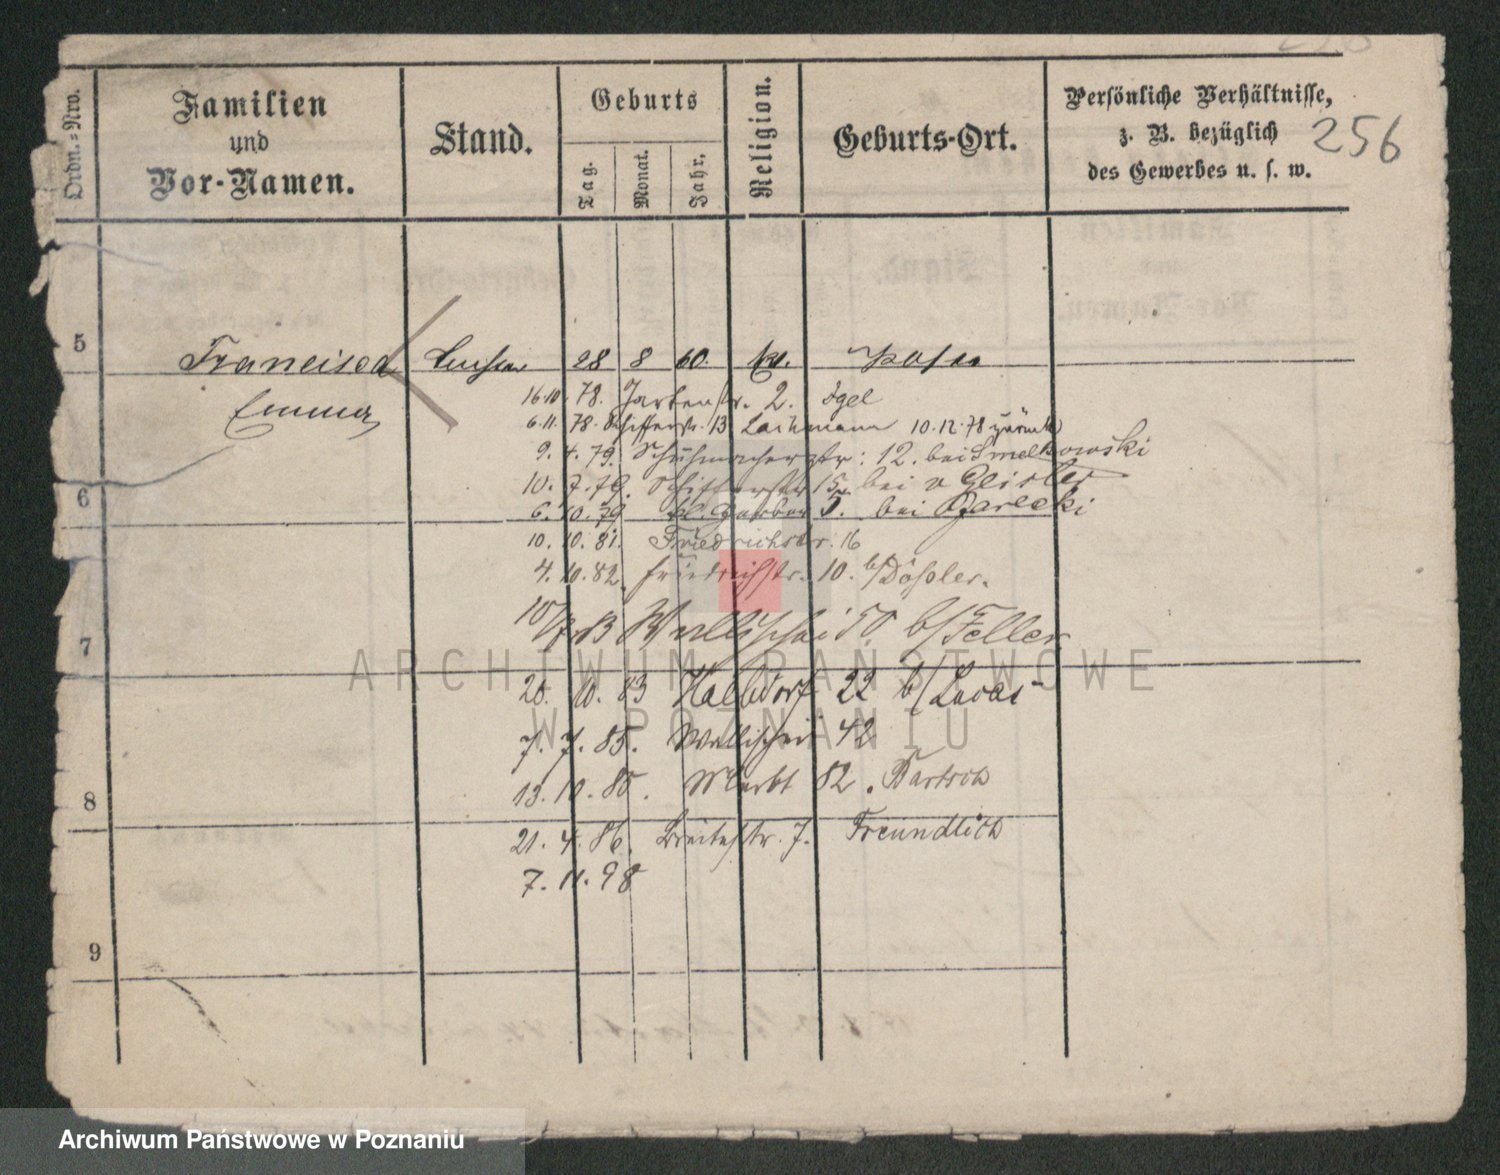 256
Ordn.=Nro.
Familien
und
Vor-Namen.
Stand.
Geburts
Tag.
Monat.
Jahr.
Religion.
Geburts-Ort.
Persönliche Verhältnisse,
z. B. bezüglich
des Gewerbes u. s. w.
5
Francisca 28 8 60. Posen
Emma
16.10.78. Gartenstr. 2. Igel
6.11.78. Schifferstr. 13 Lachmann 10.12.78 zurück
9.4.79. Schuhmacherstr: 12. bei Smelkowski
6
10.7.79. Schifferstr 15. bei v Geisler
6.10.79 kl. Gerber 5. bei Ozarecki
10.10.81. Friedrichstr. 16
4.10.82. Friedrichstr. 10. b/Dößler.
7
10/7 83 Wallischei 50 b/Feller
20.10.83 Halbdorf 22 b/Lucas
7.7.85. Wallischei 42
8
13.10.85. Markt 82. Bartsch
21.4.86. Breitestr. 7. Freundlich
7.11.98
9
ARCHIWUM PAŃSTWOWE
W POZNANIU
Archiwum Państwowe w Poznaniu